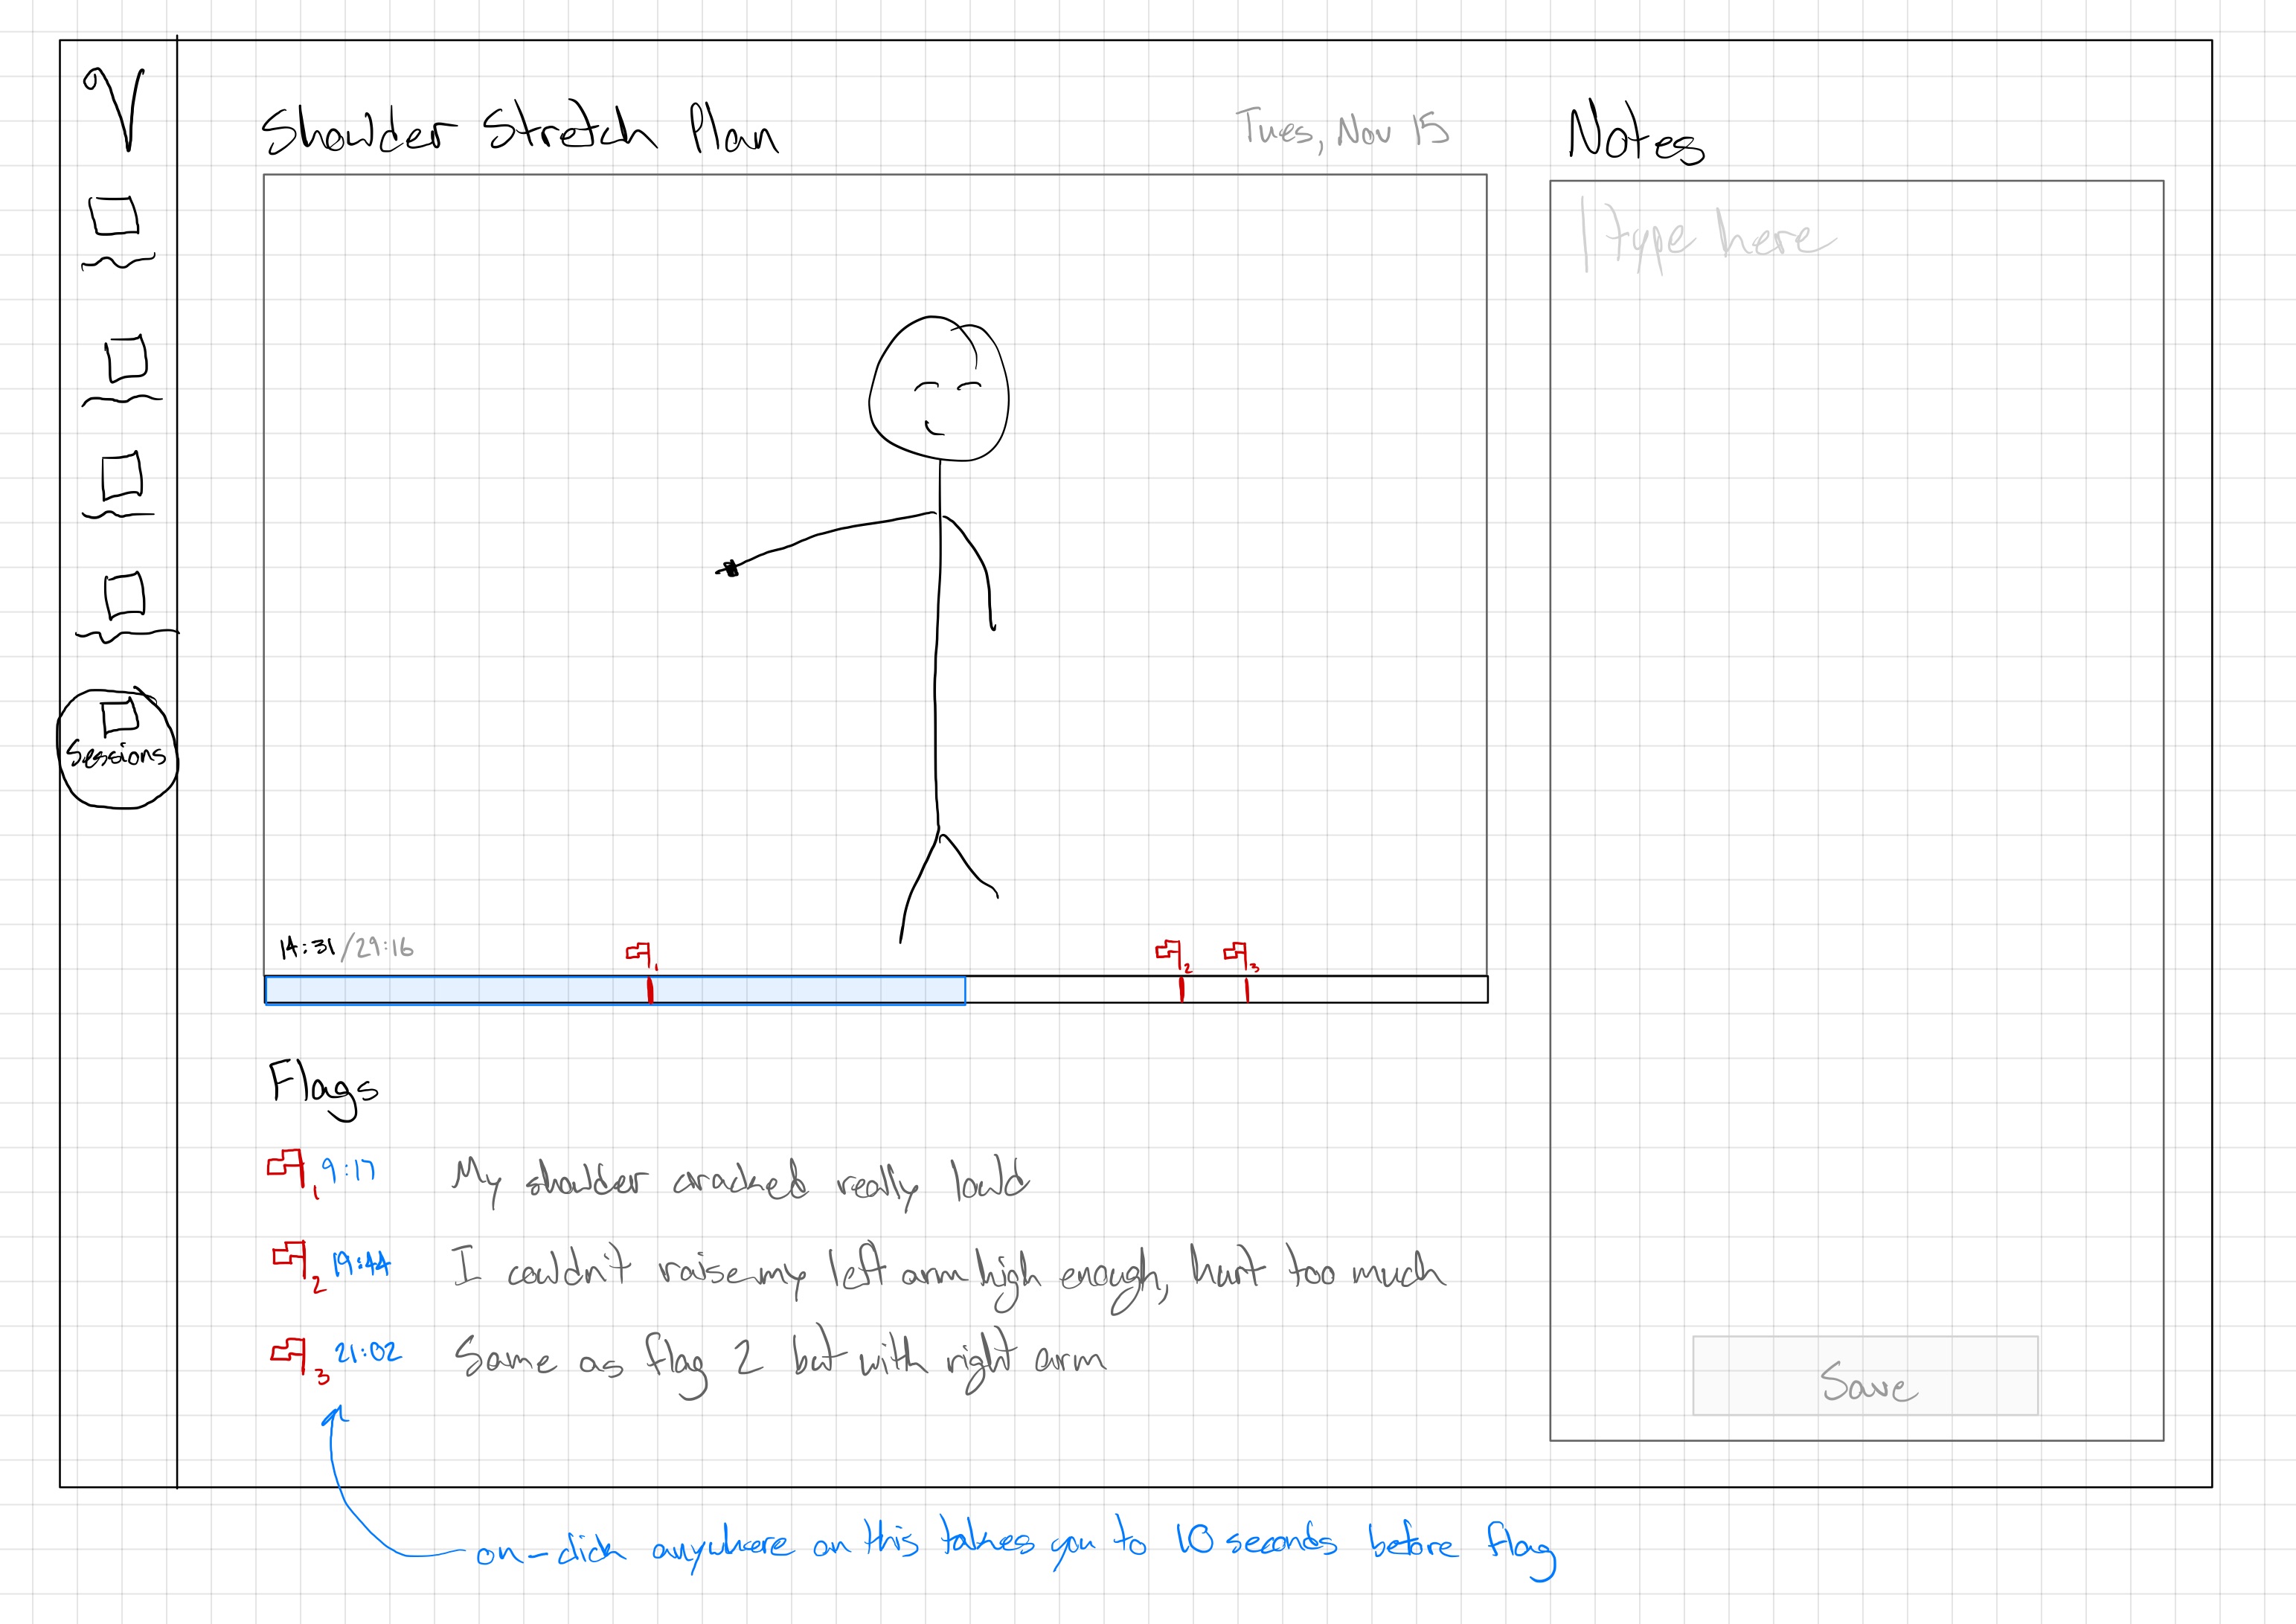 V
Sessions
Shoulder Stretch Plan
Tues, Nov 15
14:31/29:16
1
2
3
Flags
1 9:17 My shoulder cracked really loud
2 19:44 I couldn't raise my left arm high enough, hurt too much
3 21:02 Same as flag 2 but with right arm
Notes
type here
Save
on-click anywhere on this takes you to 10 seconds before flag